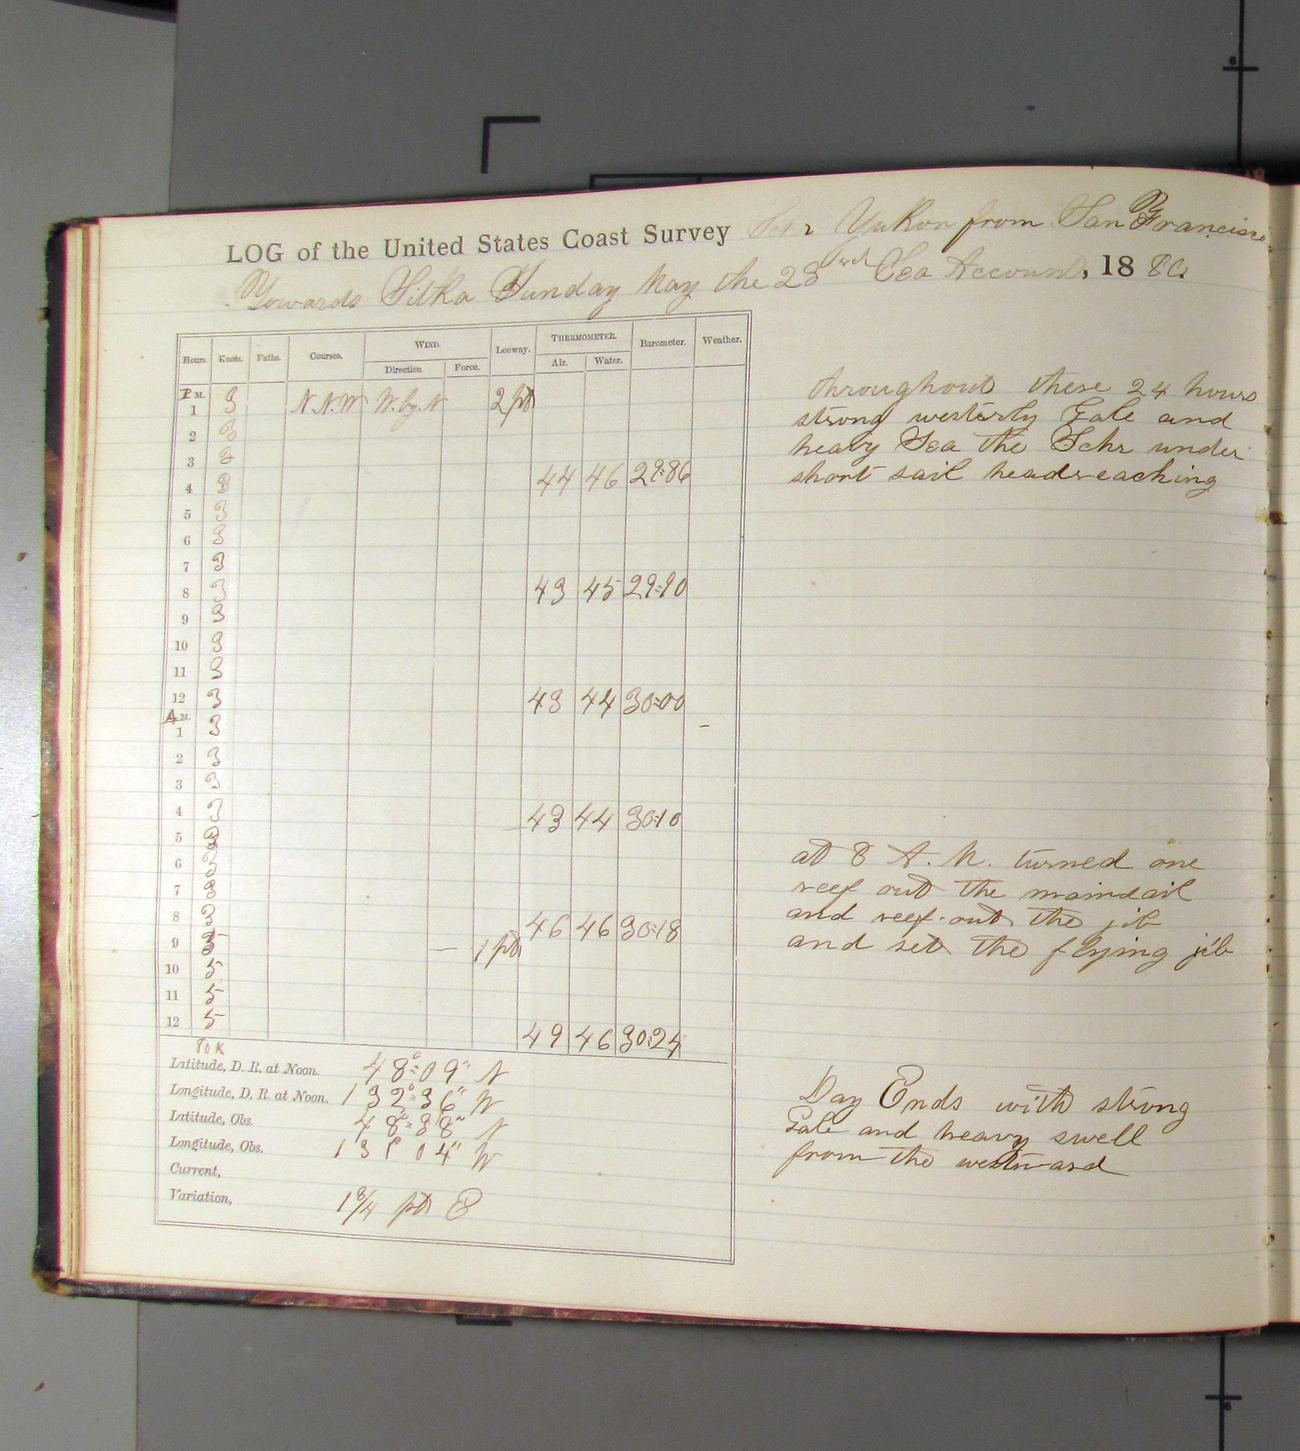 LOG of the United States Coast Survey Schr Yukon from San Francisco
Towards Sitka Sunday May the 23rd Sea Account, 1880.
Hours. Knots. Faths. Courses. WIND. Leeway. THERMOMETER. Barometer. Weather.
Direction Force. Air. Water.
P.M.
1 3 N.N.W W. by. N 2 pt
2 3
3 3
4 3 44 46 29.86
5 3
6 3
7 3
8 3 43 45 29.90
9 3
10 3
11 3
12 3 43 44 30.00
A.M.
1 3
2 3
3 3
4 3 43 44 30.10
5 3
6 3
7 3
8 3 46 46 30.18
9 5 1 pt
10 5
11 5
12 5 49 46 30.24
80 K
Latitude, D. R. at Noon. 48° 09" N
Longitude, D. R. at Noon. 132° 36" W
Latitude, Obs. 48° 38" N
Longitude, Obs. 131 04" W
Current,
Variation, 1 3/4 pt E
throughout these 24 hours
strong westerly Gale and
heavy Sea the Schr under
short sail headreaching
at 8 A. M. turned one
reef out the mainsail
and reef out the jib
and set the flying jib
Day Ends with strong
Gale and heavy swell
from the westward